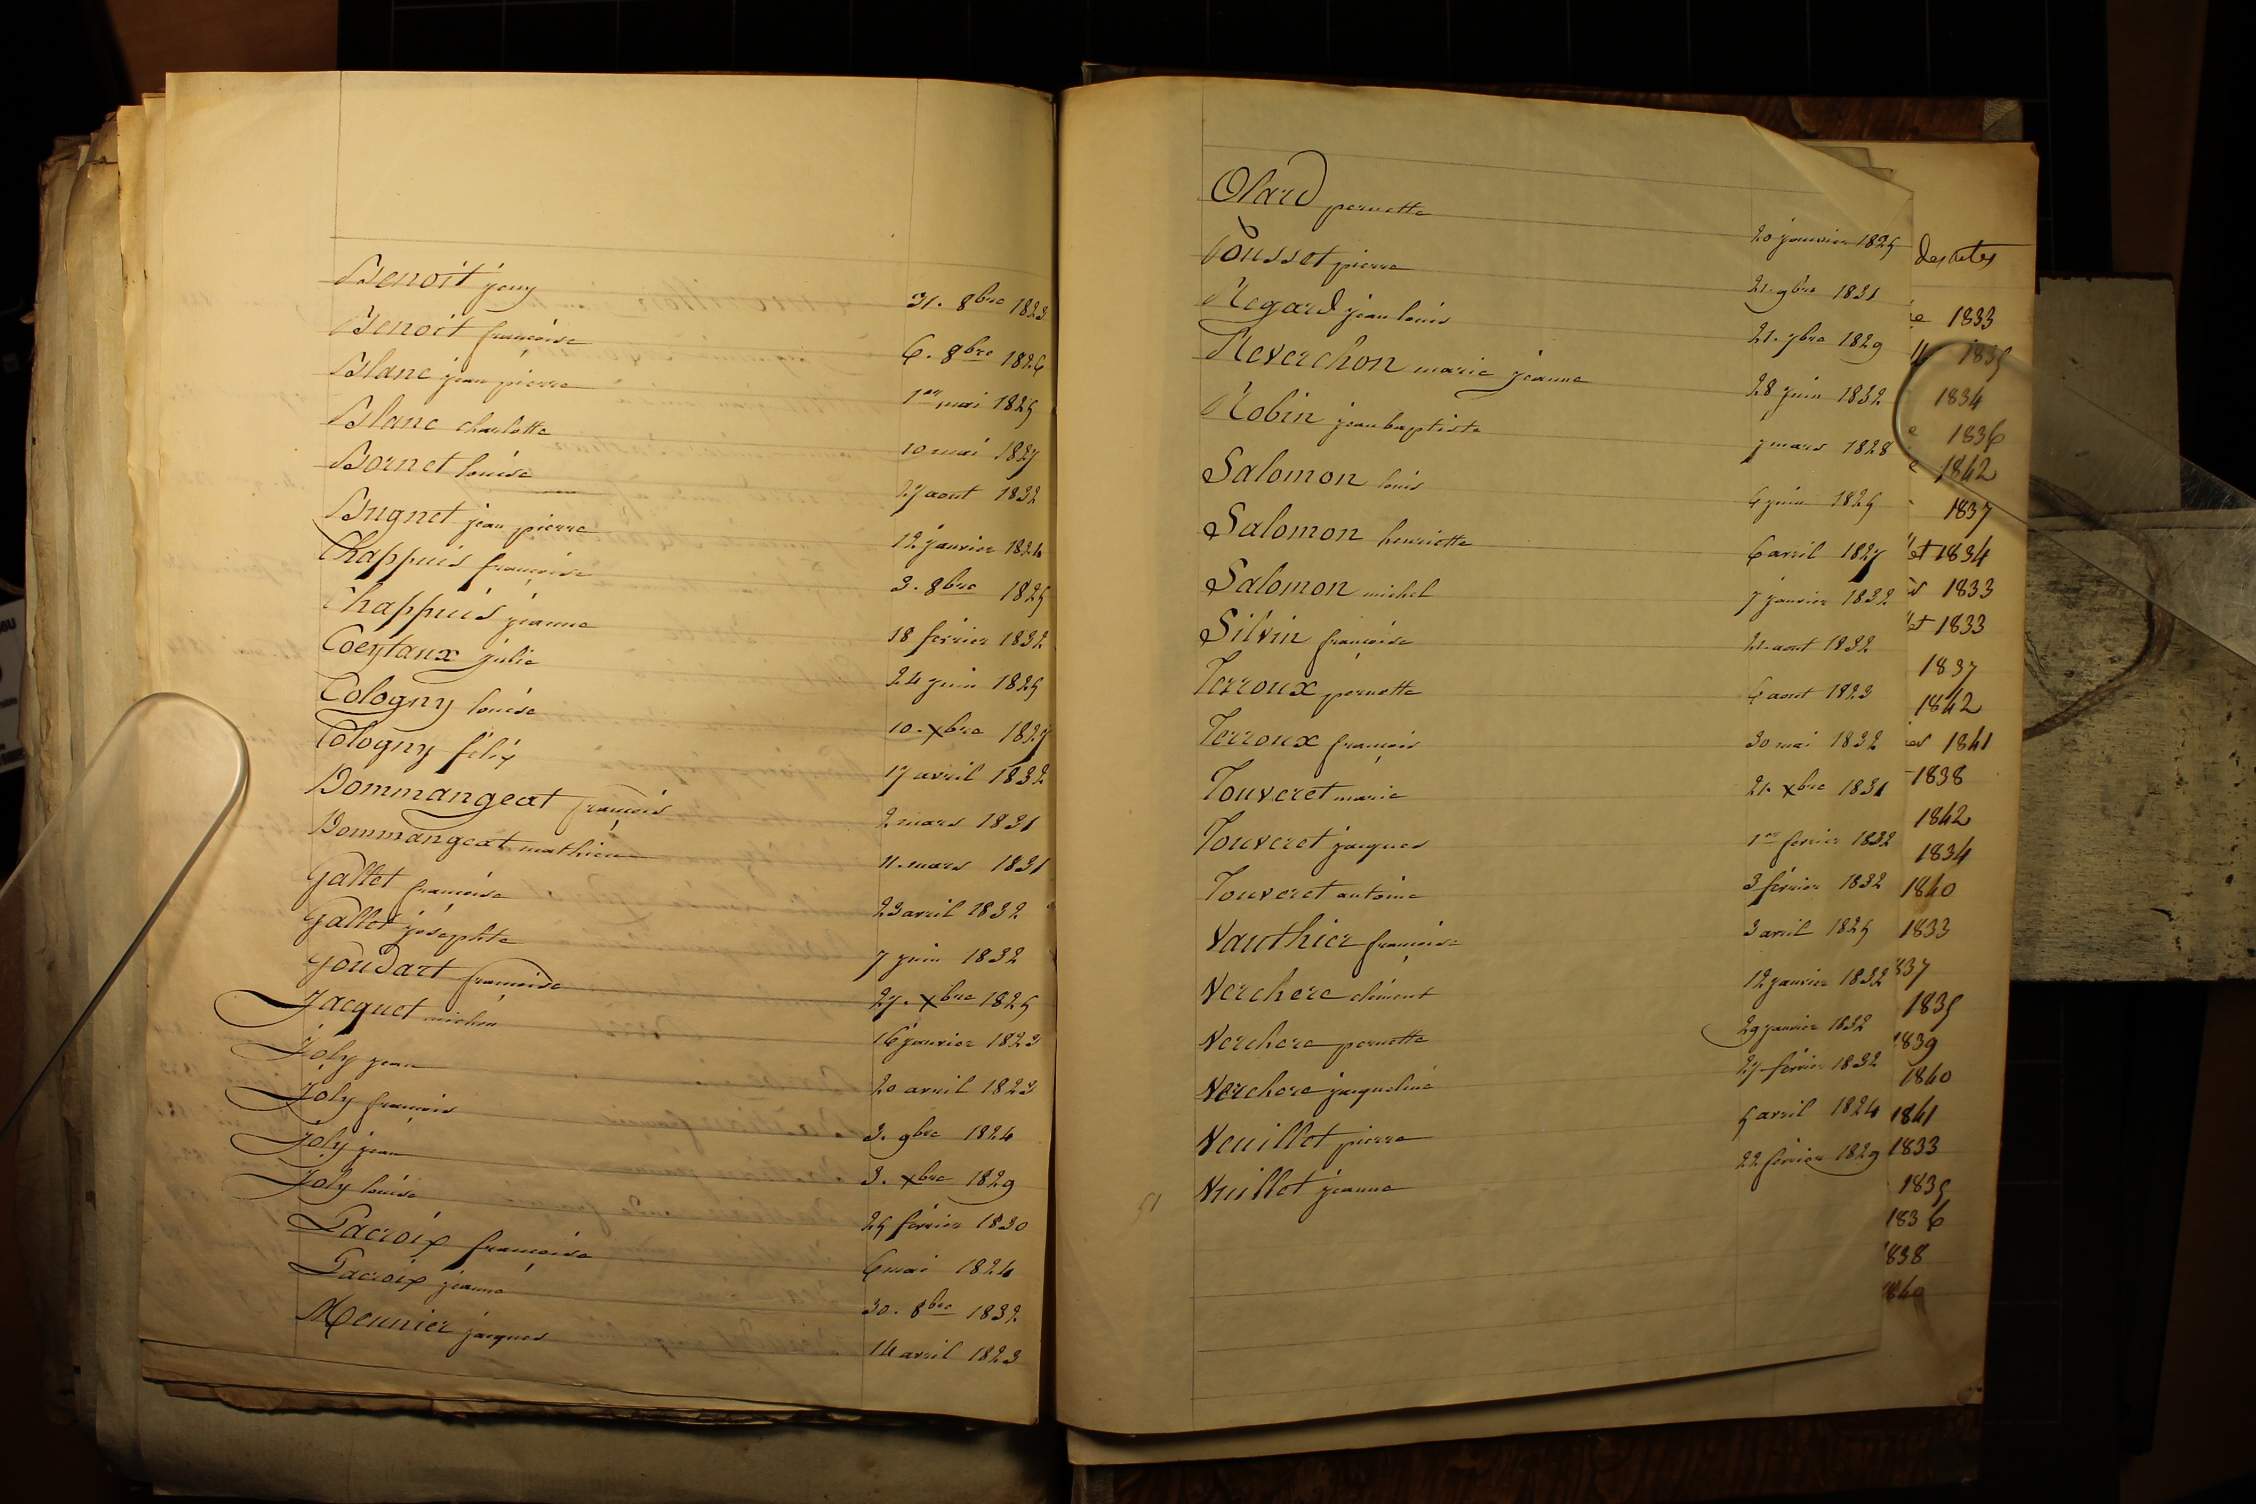 Benoit jeny 31. 8bre 1823
Benoit françoise 6. 8bre 1826
Blanc jean pierre 1er mai 1825
Blanc charlotte 10 mai 1827
Bornet louise 27 aout 1832
Bugnet jean pierre 12 janvier 1824
Chappuis françoise 3. 8bre 1825
Chappuis jeanne 18 février 1832
Coeytaux julie 24 juin 1825
Cologny louise 10. xbre 1827
Cologny félix 17 avril 1832
Dommangeat françois 2 mars 1831
Dommangeat mathieu 11. mars 1831
Gallet françoise 23 avril 1832
Gallet joséphte 7 juin 1832
Goudart françoise 27. xbre 1825
Jacquet michon 16 janvier 1823
Joly jean 20 avril 1823
Joly françois 3. 9bre 1824
Joly jean 3. xbre 1829
Joly louise 25 février 1830
Lacroix françoise 6 mai 1824
Lacroix jeanne 30. 8bre 1832
Meunier jacques 14 avril 1823
Olard pernette 20 janvier 1825
Pousset pierre 21. 9bre 1831
Regard jean louis 21. 7bre 1829
Reverchon marie jeanne 28 juin 1832
Robin jean baptiste 7 mars 1828
Salomon louis 6 juin 1825
Salomon henriette 6 avril 1827
Salomon michel 7 janvier 1832
Silvin françoise 21. aout 1832
Terroux pernette 6 aout 1823
Terroux françois 30 mai 1832
Touveret marie 21. xbre 1831
Touveret jacques 1er fevrier 1832
Touveret antoine 3 février 1832
Vauthier françoise 3 avril 1825
Verchere clément 12 janvier 1832
Verchere pernette 29 janvier 1832
Verchere jacqueline 27 février 1832
Veuillet pierre 5 avril 1824
Vuillet jeanne 22 février 1829
51
des actes
1833
1835
1834
1836
1842
1837
1834
1833
1833
1837
1842
1841
1838
1842
1834
1840
1833
837
1835
1839
1840
1841
1833
1835
1836
1838
1840